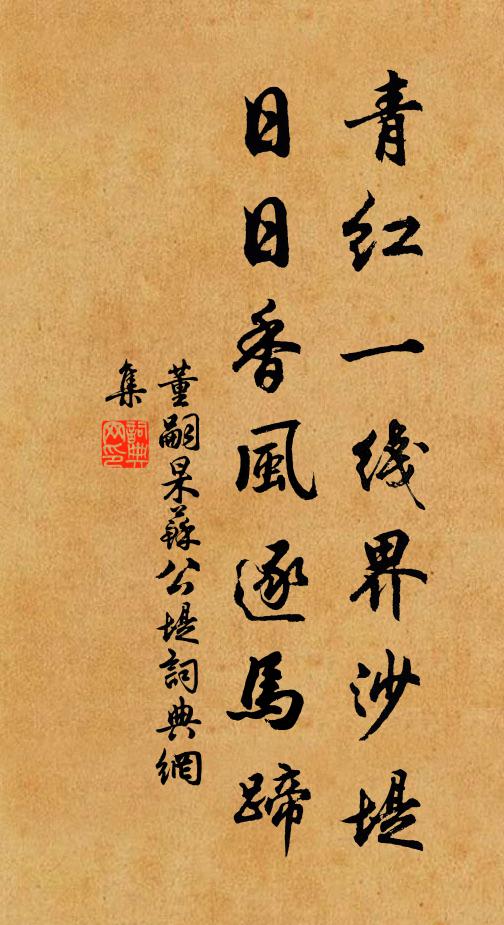 青红一线界沙堤
日日香風逐馬蹄
董嗣杲蘇公堤詞典網
集
詞典网印